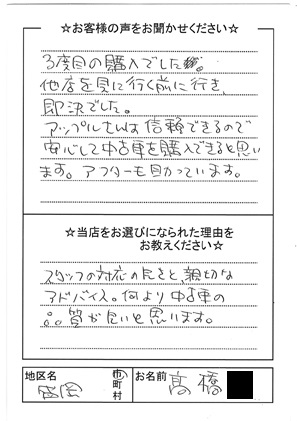 ☆お客様の声をお聞かせください☆
3度目の購入でした。
他店を見に行く前に行き、
即決でした。
アップルさんは信頼できるので
安心して中古車を購入できると思い
ます。アフターも助かっています。
☆当店をお選びになられた理由を
お教えください☆
スタッフの対応の良さと、親切な
アドバイス。何より中古車の
品質が良いと思います。
地区名 盛岡 市町村 お名前 高橋